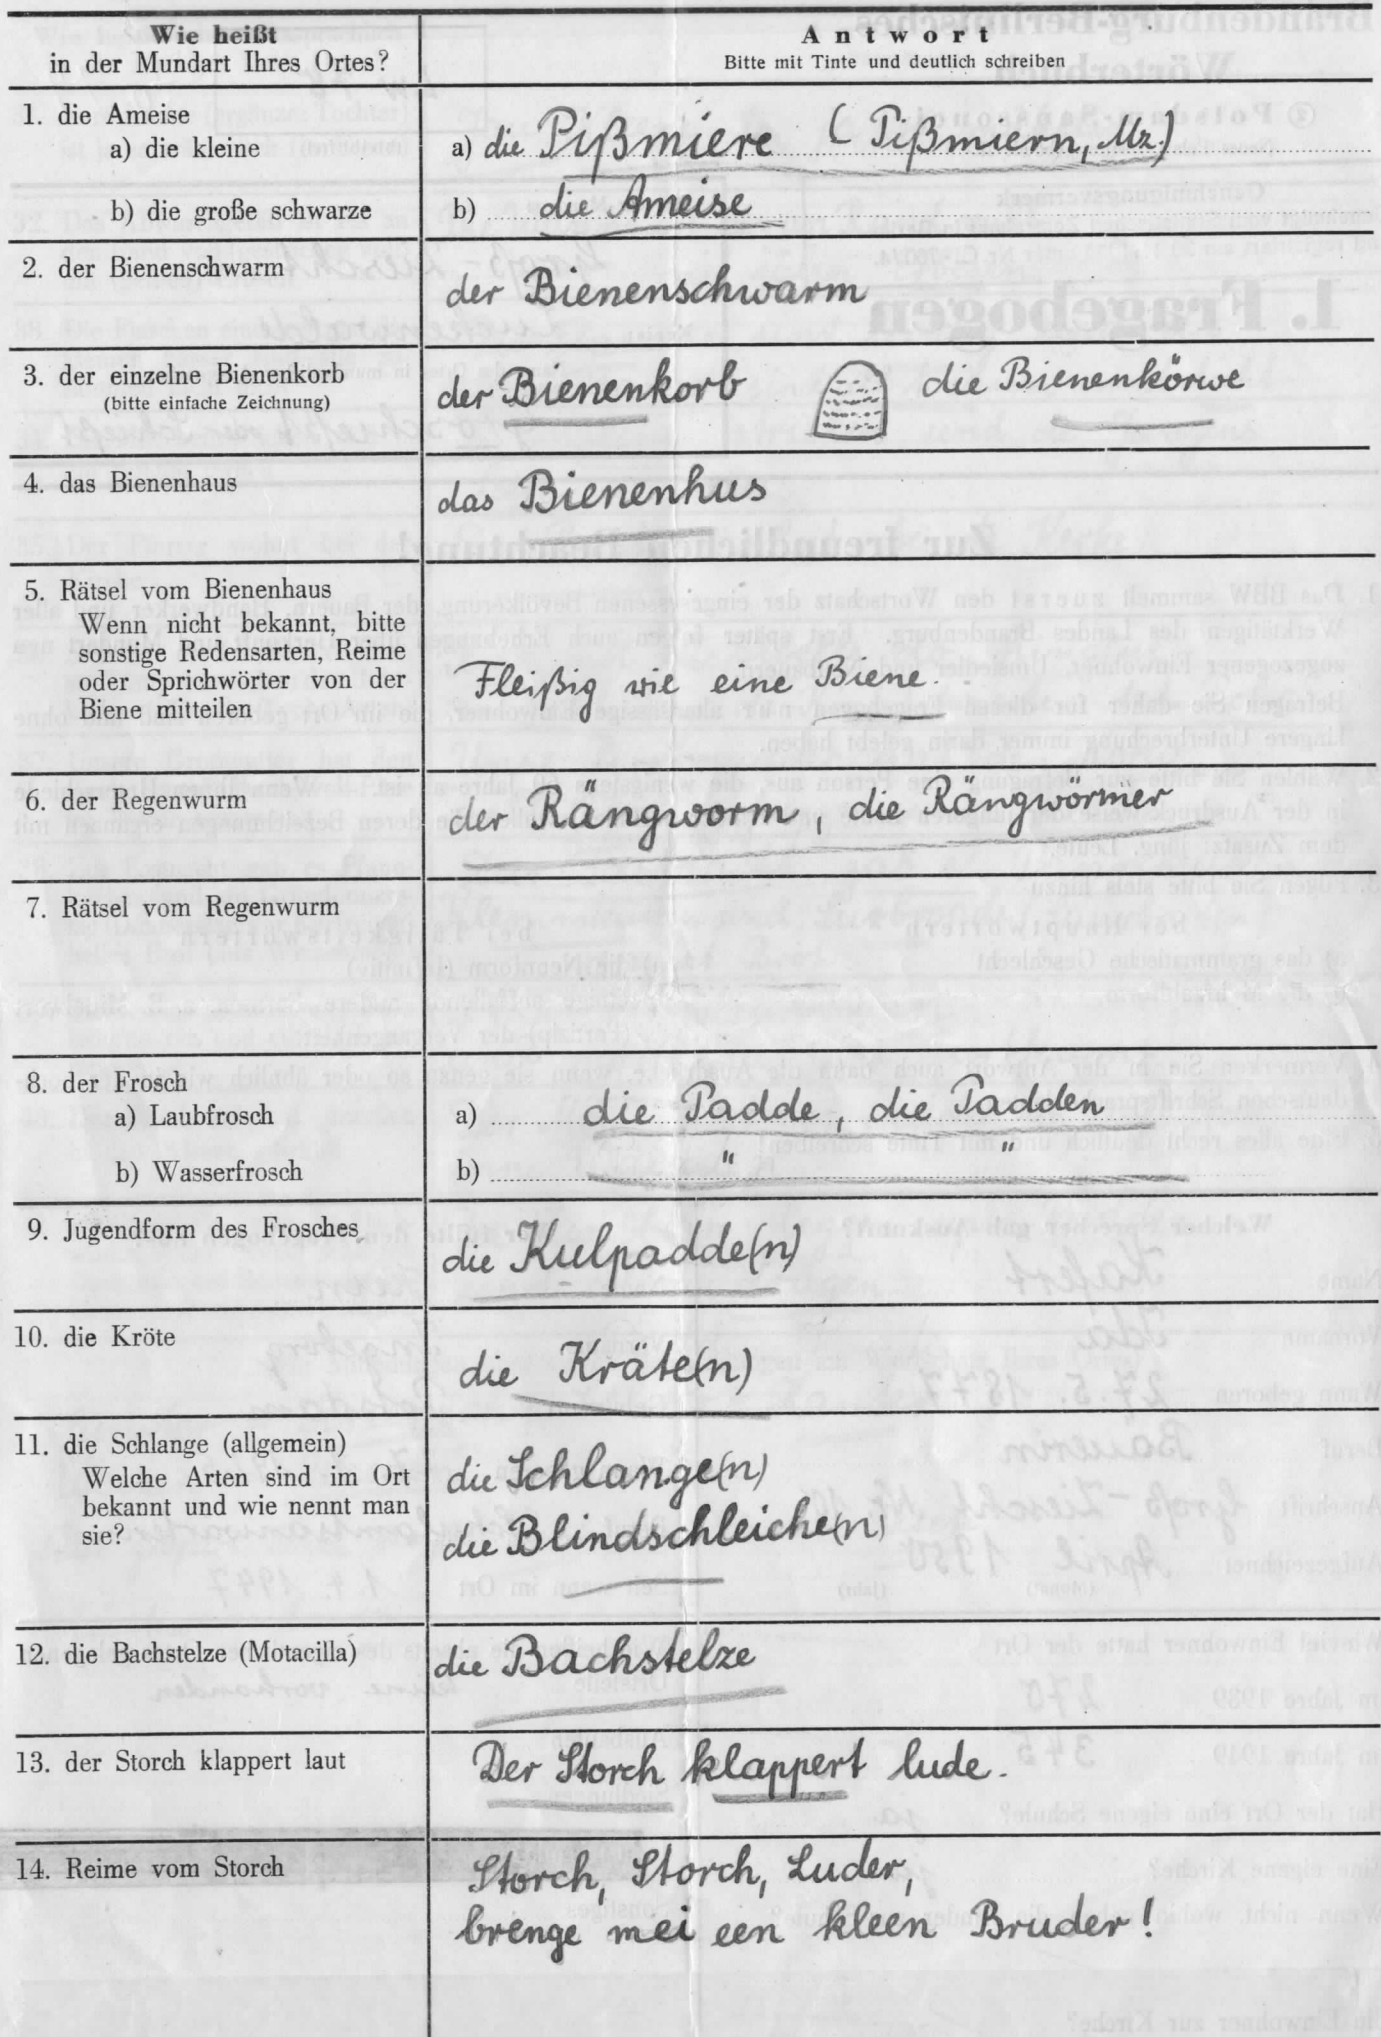 Wie heißt
in der Mundart Ihres Ortes?
Antwort
Bitte mit Tinte und deutlich schreiben
1. die Ameise
a) die kleine
a) die Pißmiere (Pißmiern, Mz.)
b) die große schwarze
b) die Ameise
2. der Bienenschwarm
der Bienenschwarm
3. der einzelne Bienenkorb
(bitte einfache Zeichnung)
der Bienenkorb die Bienenkörwe
4. das Bienenhaus
das Bienenhus
5. Rätsel vom Bienenhaus
Wenn nicht bekannt, bitte
sonstige Redensarten, Reime
oder Sprichwörter von der
Biene mitteilen
Fleißig wie eine Biene.
6. der Regenwurm
der Rängworm, die Rängwörmer
7. Rätsel vom Regenwurm
8. der Frosch
a) Laubfrosch
a) die Padde, die Padden
b) Wasserfrosch
b) " "
9. Jugendform des Frosches
die Kulpadde(n)
10. die Kröte
die Kräte(n)
11. die Schlange (allgemein)
Welche Arten sind im Ort
bekannt und wie nennt man
sie?
die Schlange(n)
die Blindschleiche(n)
12. die Bachstelze (Motacilla)
die Bachstelze
13. der Storch klappert laut
Der Storch klappert lude.
14. Reime vom Storch
Storch, Storch, Luder,
brenge mei een kleen Bruder!